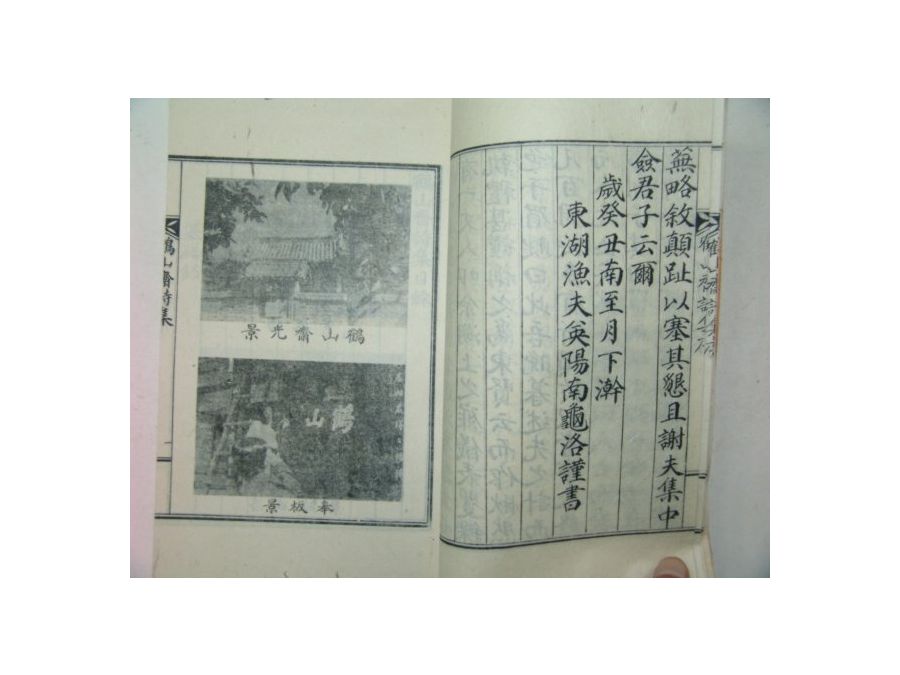 蕪略敘顛趾以塞其懇且謝夫集中
僉君子云爾
歲癸丑南至月下澣
東湖漁夫英陽南龜洛謹書
景光齋山鶴
山鶴
景板奉
鶴山齋詩集